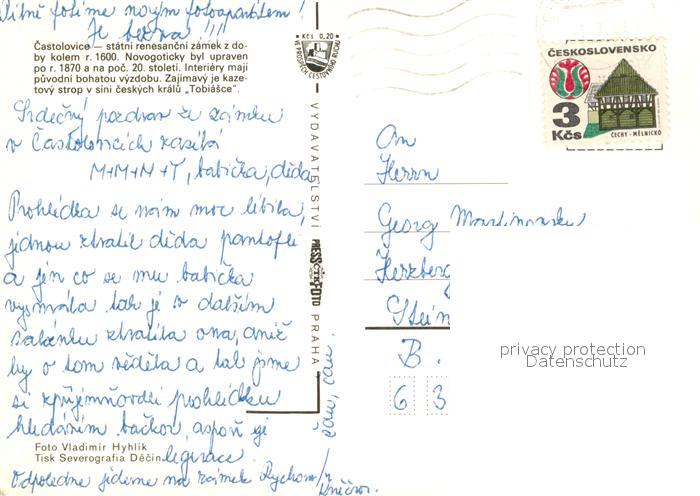 Pilně fotíme novým fotoaparátem!
Je bezva!!!
Častolovice — státní renesanční zámek z do-
by kolem r. 1600. Novogoticky byl upraven
po r. 1870 a na poč. 20. století. Interiéry mají
původní bohatou výzdobu. Zajímavý je kaze-
tový strop v síni českých králů „Tobiášce".
Srdečný pozdrav ze zámku
v Častolovicích zasílá
M+M+M+T, babička, děda
Prohlídka se nám moc líbila,
jednou ztratil děda pantofli
a jen co se mu babička
vysmála tak je v dalším
salónku ztratila ona, aniž
by o tom věděla a tak jsme
si zpříjemňovali prohlídku
hledáním bačkor, aspoň je
legrace.
Odpoledne jdeme na zámek Rychnov/n
Kněžnou.
čau, čau.
Foto Vladimír Hyhlík
Tisk Severografia Děčín
VYDAVATELSTVÍ PRESSFOTO PRAHA
Kčs 0,20
VE PROSPĚCH CESTOVNÍHO RUCHU
ČESKOSLOVENSKO
3
Kčs
ČECHY - MĚLNICKO
An
Herrn
Georg
Herzberg
Stein
B.
63
privacy protection
Datenschutz